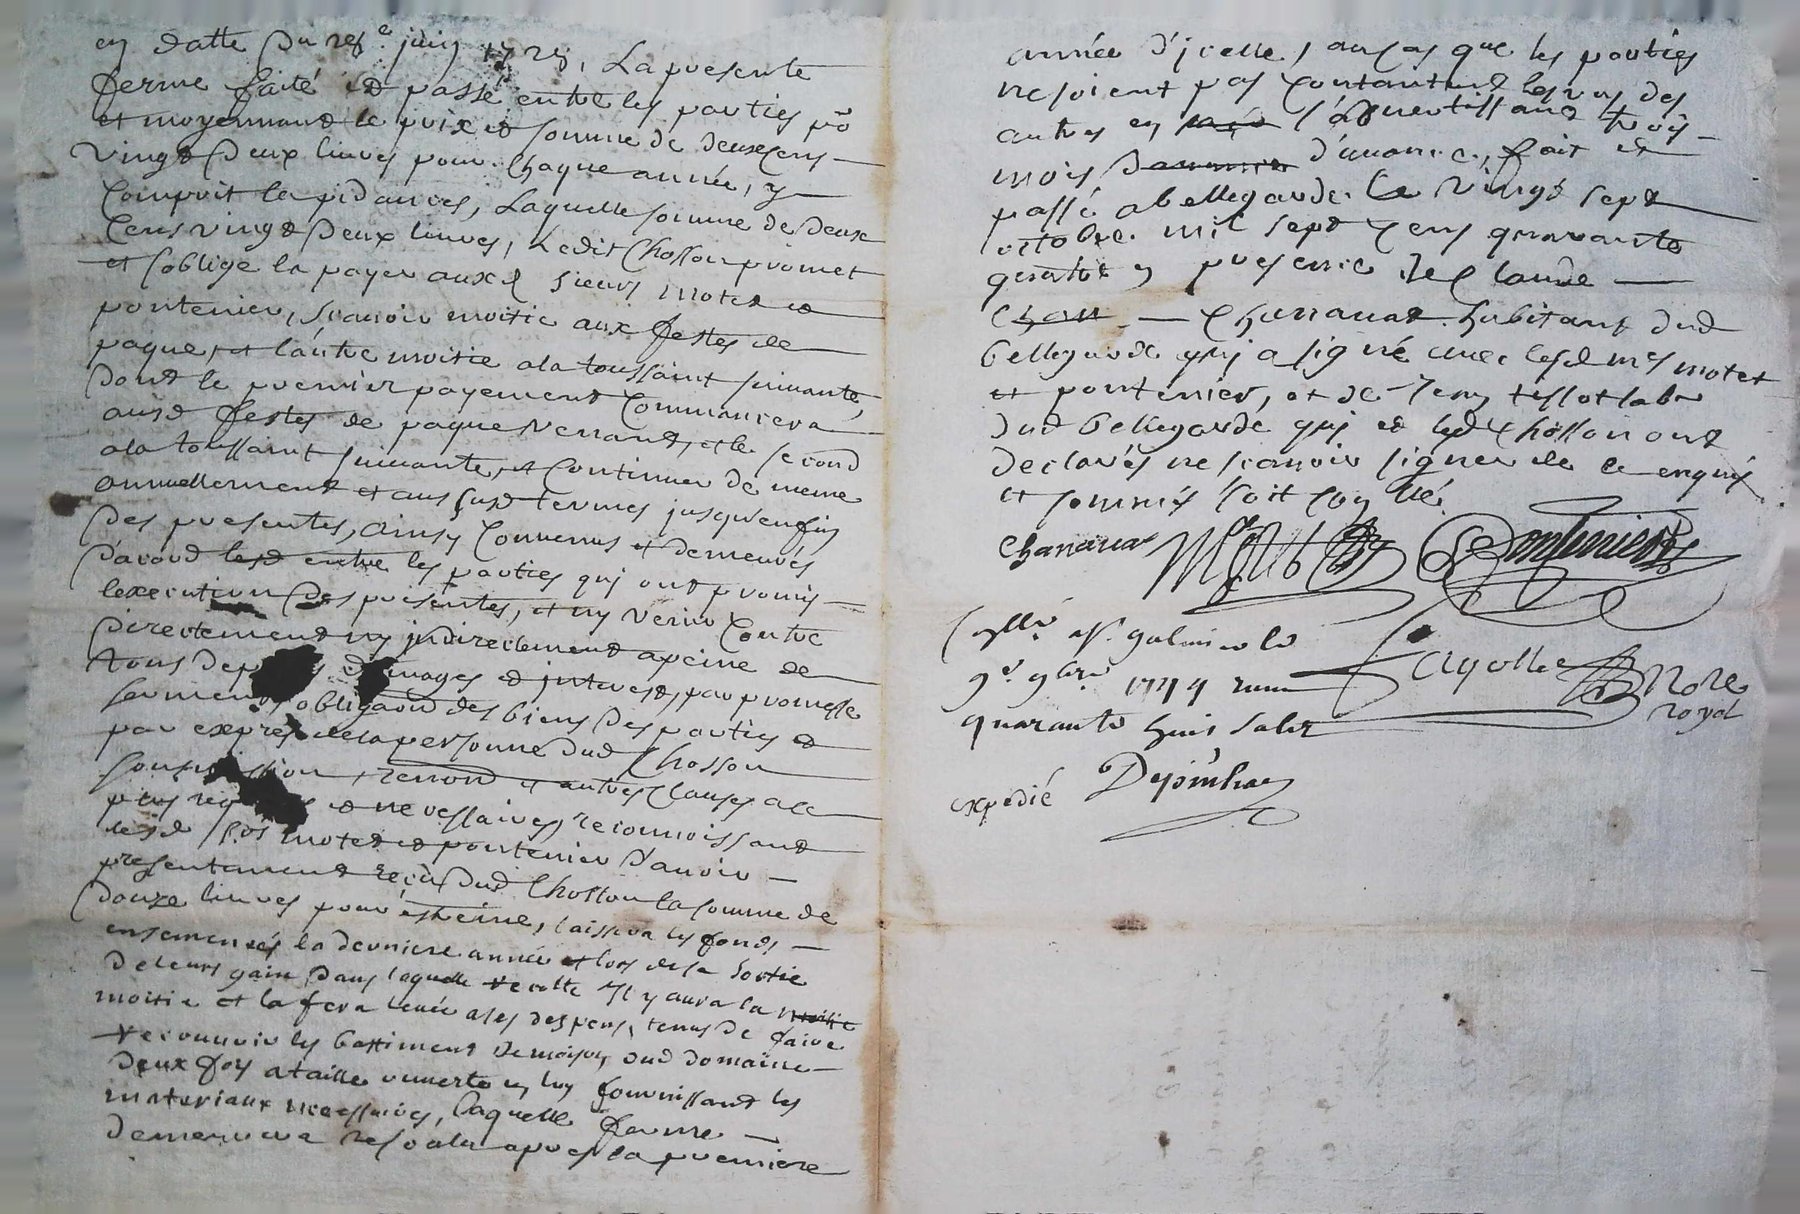 en datte du 28e juin 1725, La presente
ferme faité et passé entre les parties po
et moyennant le prix et somme de deux cens
vingt deux livres pour chaque année, y
Compris les pidances, Laquelle somme de deux
Cens vingt deux livres, Ledit Chosson promet
et soblige la payer auxd sieurs motet et
pontenier, scavoir moitie aux festes de
paque, et l'autre moitie ala toussaint suivante,
dont le premier payement Commancera
auxd festes de paque venant, et le second
ala toussaint suivante, et Continuer de meme
annuellement et aux susd termes jusqu'enfin
des presentes, ainsy Convenus et demeurés
d'acord lesd entre les parties qui ont promis
lexecution des presentes, et ny venir Contre
directement ny indirectement apeine de
tous dep d mages et interest, par promesse
serment obligaon des biens des parties et
par exprés dela personne dud Chosson
soumission, renond et autres Clauses ace
plus req et necessaires, reconnoissant
lesd srs motet et pontenier d'avoir
presentement reçu dud Chosson la somme de
douze livres pour estreine, laissera les fonds
ensemencés la derniere année et lors de sa sortie
de leurs gain dans laquelle recolte Il y aura la moitie
moitie et la fera levée a ses despens, tenus de faire
recouvrir les battiment de maison dud domaine
deux fois ataille ouverte en luy fournissant les
materiaux necessaires, laquelle ferme
demeurera resolue apres la premiere
année d'icelle, aucas que les parties
ne soient pas Contantes les uns des
autres en s'avertissant trois
mois d'avance, fait et
passé a bellegarde le vingt sept
octobre mil sept Cens quarante
quatre en presence de Claude
Chan Chanavat habitant dud
bellegarde qui a signé avec lesd mes motet
et pontenier, et de Jean tissot labr
dud bellegarde qui et led Chosson ont
declarés ne scavoir signer de ce enquis
et sommés soit Con llé
Chanavat Motet Pontenier
Conllé a St galmier le
9e 9bre 1744 recu
quarante huit sols
Cagolle Nore
royal
expedié Dejoinha